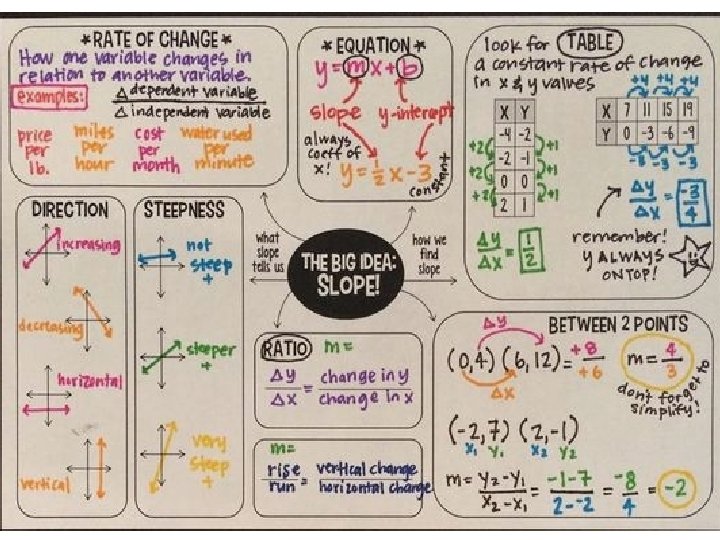 *RATE OF CHANGE*
How one variable changes in
relation to another variable.
examples:
Δ dependent variable
Δ independent variable
price per lb.
miles per hour
cost per month
water used per minute
*EQUATION*
y=mx+b
slope
y-intercept
always
coeff of
x!
y=1/2x-3
constant
look for TABLE
a constant rate of change
in x & y values
X Y
-4 -2
-2 -1
0 0
2 1
+2
+2
+2
+1
+1
+1
Δy/Δx = 1/2
+4 +4 +4
X 7 11 15 19
Y 0 -3 -6 -9
-3 -3 -3
Δy/Δx = -3/4
remember!
y ALWAYS
ON TOP!
DIRECTION
increasing
decreasing
horizontal
vertical
STEEPNESS
not
steep
+
steeper
+
very
steep
+
what
slope
tells us
THE BIG IDEA:
SLOPE!
how we
find
slope
RATIO m=
Δy/Δx = change in y/change in x
m=
rise/run = vertical change/horizontal change
BETWEEN 2 POINTS
Δy
(0,4) (6,12) = +8/+6
m= 4/3
Δx
don't forget to
simplify!
(-2,7) (2,-1)
x₁ y₁ x₂ y₂
m= y₂-y₁/x₂-x₁ = -1-7/2--2 = -8/4 = -2